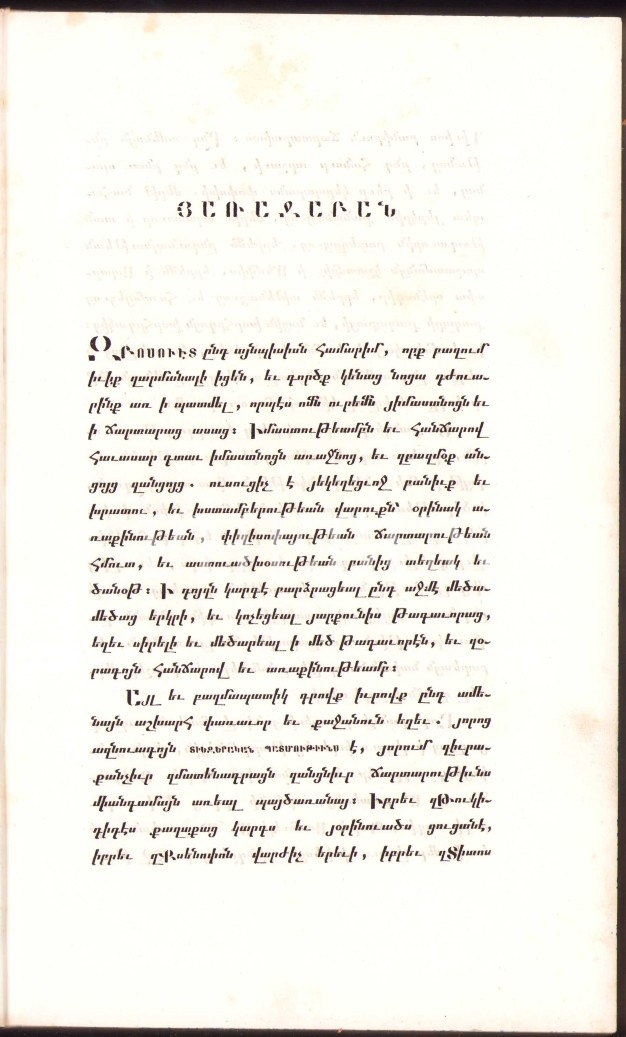 ՅԱՌԱՋԱԲԱՆ
ԶԲՈՍՈՒԷՏ ընդ այնպիսիսն համարիմ, որք բազում
իւիք զարմանալի իցեն, եւ գործք կենաց նոցա դժուա-
րինք առ ի պատմել, որպէս ոմն ուրեմն յիմաստնոցն եւ
ի ճարտարաց ասաց։ Իմաստութեամբն եւ հանճարով
հաւասար գտաւ իմաստնոցն առաջնոց, եւ զբազմօք ան-
ցոյց զանցոյց. ուսուցիչ է յեկեղեցւոջ բանիւք եւ
խրատու, եւ խստամբերութեան վարուքն՝ օրինակ ա-
ռաքինութեան, փիլիսոփայութեան ճարտարութեան
հմուտ, եւ աստուածխօսութեան բանից տեղեակ եւ
ծանօթ։ Ի դոյզն կարգէ բարձրացեալ ընդ աջմէ մեծա-
մեծաց երկրի, եւ կոչեցեալ յարքունիս թագաւորաց,
եղեւ սիրելի եւ մեծարեալ ի մեծ թագաւորէն, եւ զօ-
րագոյն հանճարով եւ առաքինութեամբ։
Այլ եւ բազմապատիկ գրովք իւրովք ընդ ամե-
նայն աշխարհ փառաւոր եւ քաջանուն եղեւ. յորոց
ազնուագոյն ՏԻԵԶԵՐԱԿԱՆ ՊԱՏՄՈՒԹԻՒՆՍ է, յորում զիւրա-
քանչիւր զմատենագրացն զանցնիւր ճարտարութիւնս
միանգամայն առեալ պայծառանայ։ Իբրեւ զԹուկի-
դիդէս քաղաքաց կարգս եւ յօրինուածս ցուցանէ,
իբրեւ զՔսենոփոն վարժիչ երեւի, իբրեւ զՏիտոս